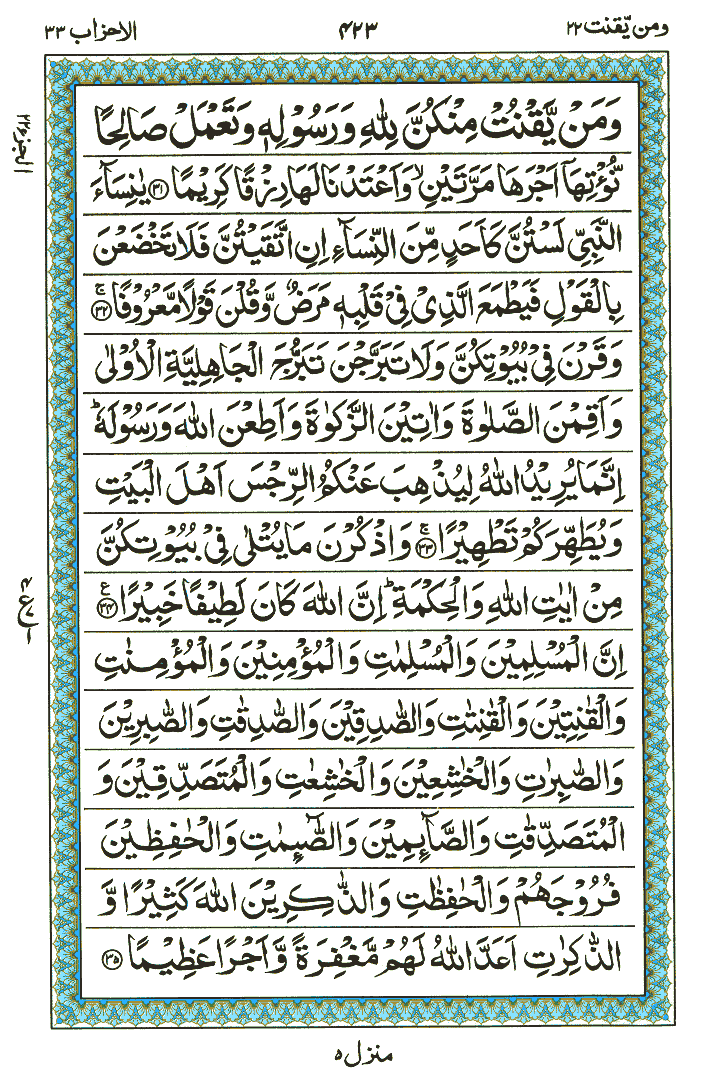 ومن یّقنت ۲۲
۴۲۳
الاحزاب ۳۳
وَمَنْ يَّقْنُتْ مِنْكُنَّ لِلّٰهِ وَرَسُوْلِهٖ وَتَعْمَلْ صَالِحًا
نُّؤْتِهَاۤ اَجْرَهَا مَرَّتَيْنِ ۙ وَاَعْتَدْنَا لَهَا رِزْقًا كَرِيْمًا ﴿۳۱﴾ يٰنِسَآءَ
النَّبِيِّ لَسْتُنَّ كَاَحَدٍ مِّنَ النِّسَآءِ اِنِ اتَّقَيْتُنَّ فَلَا تَخْضَعْنَ
بِالْقَوْلِ فَيَطْمَعَ الَّذِىْ فِىْ قَلْبِهٖ مَرَضٌ وَّقُلْنَ قَوْلًا مَّعْرُوْفًا ﴿۳۲﴾ۚ
وَقَرْنَ فِىْ بُيُوْتِكُنَّ وَلَا تَبَرَّجْنَ تَبَرُّجَ الْجَاهِلِيَّةِ الْاُوْلٰى
وَاَقِمْنَ الصَّلٰوةَ وَاٰتِيْنَ الزَّكٰوةَ وَاَطِعْنَ اللّٰهَ وَرَسُوْلَهٗ ؕ
اِنَّمَا يُرِيْدُ اللّٰهُ لِيُذْهِبَ عَنْكُمُ الرِّجْسَ اَهْلَ الْبَيْتِ
وَيُطَهِّرَكُمْ تَطْهِيْرًا ﴿۳۳﴾ۚ وَاذْكُرْنَ مَا يُتْلٰى فِىْ بُيُوْتِكُنَّ
مِنْ اٰيٰتِ اللّٰهِ وَالْحِكْمَةِ ؕ اِنَّ اللّٰهَ كَانَ لَطِيْفًا خَبِيْرًا ﴿۳۴﴾ ع
اِنَّ الْمُسْلِمِيْنَ وَالْمُسْلِمٰتِ وَالْمُؤْمِنِيْنَ وَالْمُؤْمِنٰتِ
وَالْقٰنِتِيْنَ وَالْقٰنِتٰتِ وَالصّٰدِقِيْنَ وَالصّٰدِقٰتِ وَالصّٰبِرِيْنَ
وَالصّٰبِرٰتِ وَالْخٰشِعِيْنَ وَالْخٰشِعٰتِ وَالْمُتَصَدِّقِيْنَ وَ
الْمُتَصَدِّقٰتِ وَالصَّآئِمِيْنَ وَالصّٰٓئِمٰتِ وَالْحٰفِظِيْنَ
فُرُوْجَهُمْ وَالْحٰفِظٰتِ وَالذّٰكِرِيْنَ اللّٰهَ كَثِيْرًا وَّ
الذّٰكِرٰتِ اَعَدَّ اللّٰهُ لَهُمْ مَّغْفِرَةً وَّاَجْرًا عَظِيْمًا ﴿۳۵﴾
الجزء ۲۲
۴
ع ۷
۱
منزل ۵